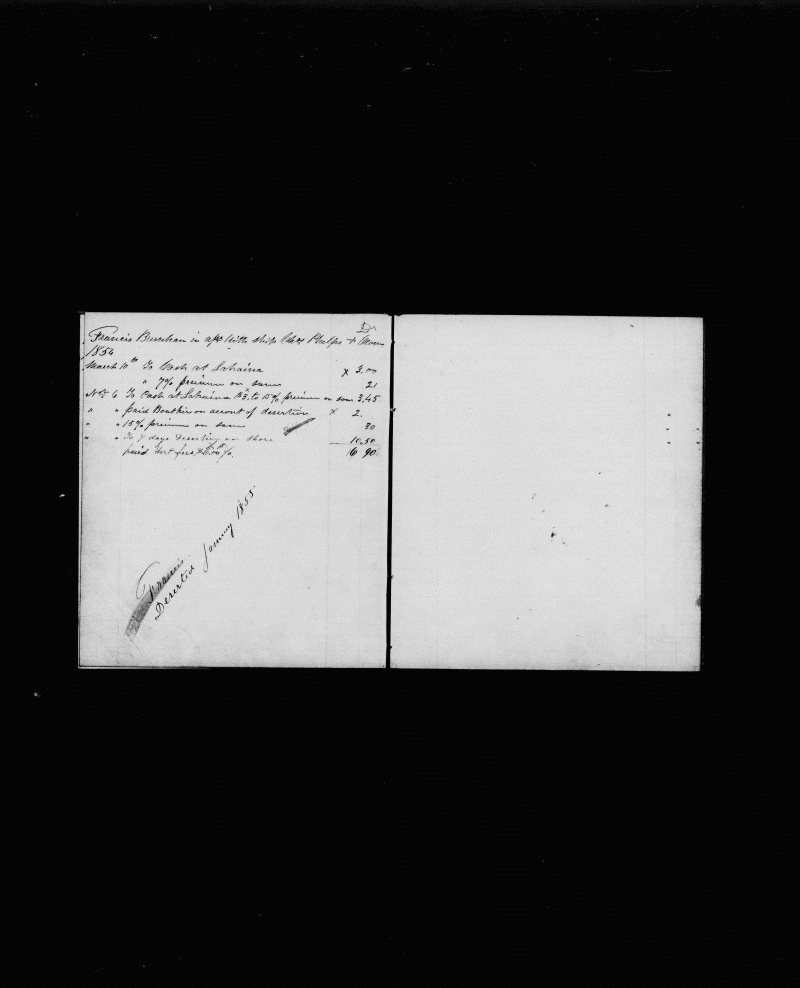 Dr
Francis in a/c with ship Chas Phelps & Owners
1854
March 10th To Cash at Lahaina x 3.00
" 7% premium on same 21
6 To Cash at Lahaina $3. to 15% premium on same 3.45
" " paid on account of desertion x 2.
" " 15% premium on same 30
" " To 7 days on shore 10.50
paid
Francis
Deserted January 1855